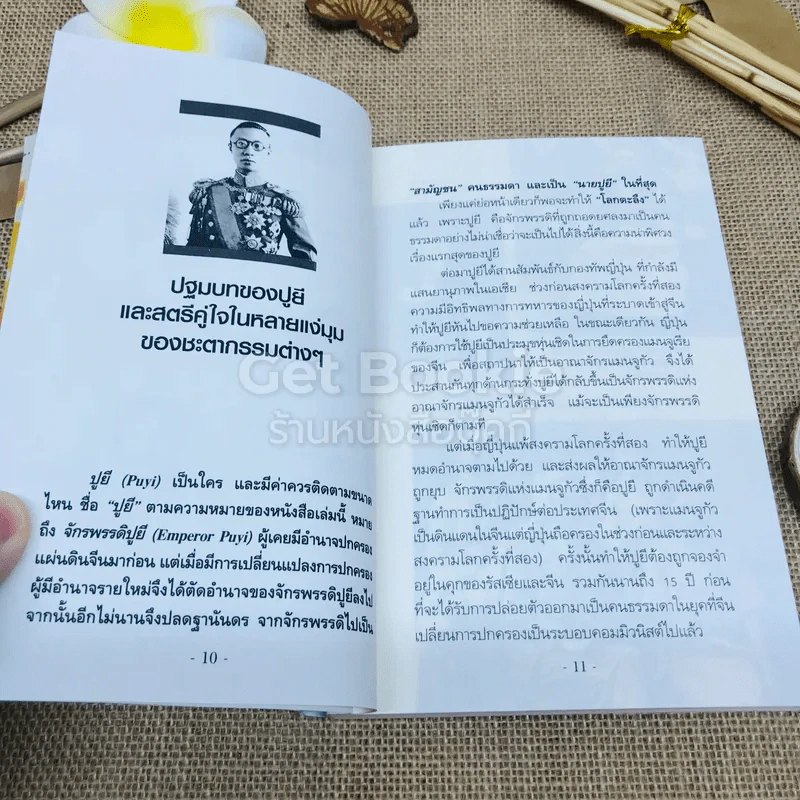 ปฐมบทของปูยี
และสตรีคู่ใจในหลายแง่มุม
ของชะตากรรมต่างๆ
ปูยี (Puyi) เป็นใคร และมีค่าควรติดตามขนาด
ไหน ชื่อ “ปูยี” ตามความหมายของหนังสือเล่มนี้ หมาย
ถึง จักรพรรดิปูยี (Emperor Puyi) ผู้เคยมีอำนาจปกครอง
แผ่นดินจีนมาก่อน แต่เมื่อมีการเปลี่ยนแปลงการปกครอง
ผู้มีอำนาจรายใหม่จึงได้ตัดอำนาจของจักรพรรดิปูยีลงไป
จากนั้นอีกไม่นานจึงปลดฐานันดร จากจักรพรรดิไปเป็น
- 10 -
“สามัญชน” คนธรรมดา และเป็น “นายปูยี” ในที่สุด
เพียงแค่ย่อหน้าเดียวก็พอจะทำให้ “โลกตะลึง” ได้
แล้ว เพราะปูยี คือจักรพรรดิที่ถูกถอดยศลงมาเป็นคน
ธรรมดาอย่างไม่น่าเชื่อว่าจะเป็นไปได้ สิ่งนี้คือความน่าพิศวง
เรื่องแรกสุดของปูยี
ต่อมาปูยีได้สานสัมพันธ์กับกองทัพญี่ปุ่น ที่กำลังมี
แสนยานุภาพในเอเชีย ช่วงก่อนสงครามโลกครั้งที่สอง
ความมีอิทธิพลทางการทหารของญี่ปุ่นที่ระบาดเข้าสู่จีน
ทำให้ปูยีหันไปขอความช่วยเหลือ ในขณะเดียวกัน ญี่ปุ่น
ก็ต้องการใช้ปูยีเป็นประมุขหุ่นเชิดในการยึดครองแมนจูเรีย
ของจีน เพื่อสถาปนาให้เป็นอาณาจักรแมนจูกัว จึงได้
ประสานกันทุกด้านกระทั่งปูยีได้กลับขึ้นเป็นจักรพรรดิแห่ง
อาณาจักรแมนจูกัวได้สำเร็จ แม้จะเป็นเพียงจักรพรรดิ
หุ่นเชิดก็ตามที
แต่เมื่อญี่ปุ่นแพ้สงครามโลกครั้งที่สอง ทำให้ปูยี
หมดอำนาจตามไปด้วย และส่งผลให้อาณาจักรแมนจูกัว
ถูกยุบ จักรพรรดิแห่งแมนจูกัวซึ่งก็คือปูยี ถูกดำเนินคดี
ฐานทำการเป็นปฏิปักษ์ต่อประเทศจีน (เพราะแมนจูกัว
เป็นดินแดนในจีนแต่ญี่ปุ่นถือครองในช่วงก่อนและระหว่าง
สงครามโลกครั้งที่สอง) ครั้งนั้นทำให้ปูยีต้องถูกจองจำ
อยู่ในคุกของรัสเซียและจีน รวมกันนานถึง 15 ปี ก่อน
ที่จะได้รับการปล่อยตัวออกมาเป็นคนธรรมดาในยุคที่จีน
เปลี่ยนการปกครองเป็นระบอบคอมมิวนิสต์ไปแล้ว
- 11 -
ร้านหนังสือบุ๊คกี้